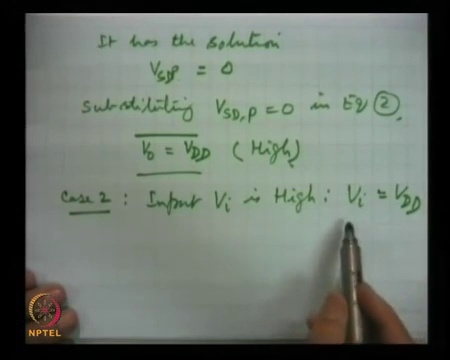 It has the solution
V_SDP = 0
Substituting V_SD,P = 0 in Eq ②.
V_0 = V_DD (High)
Case 2 : Input V_i is High : V_i = V_DD
NPTEL